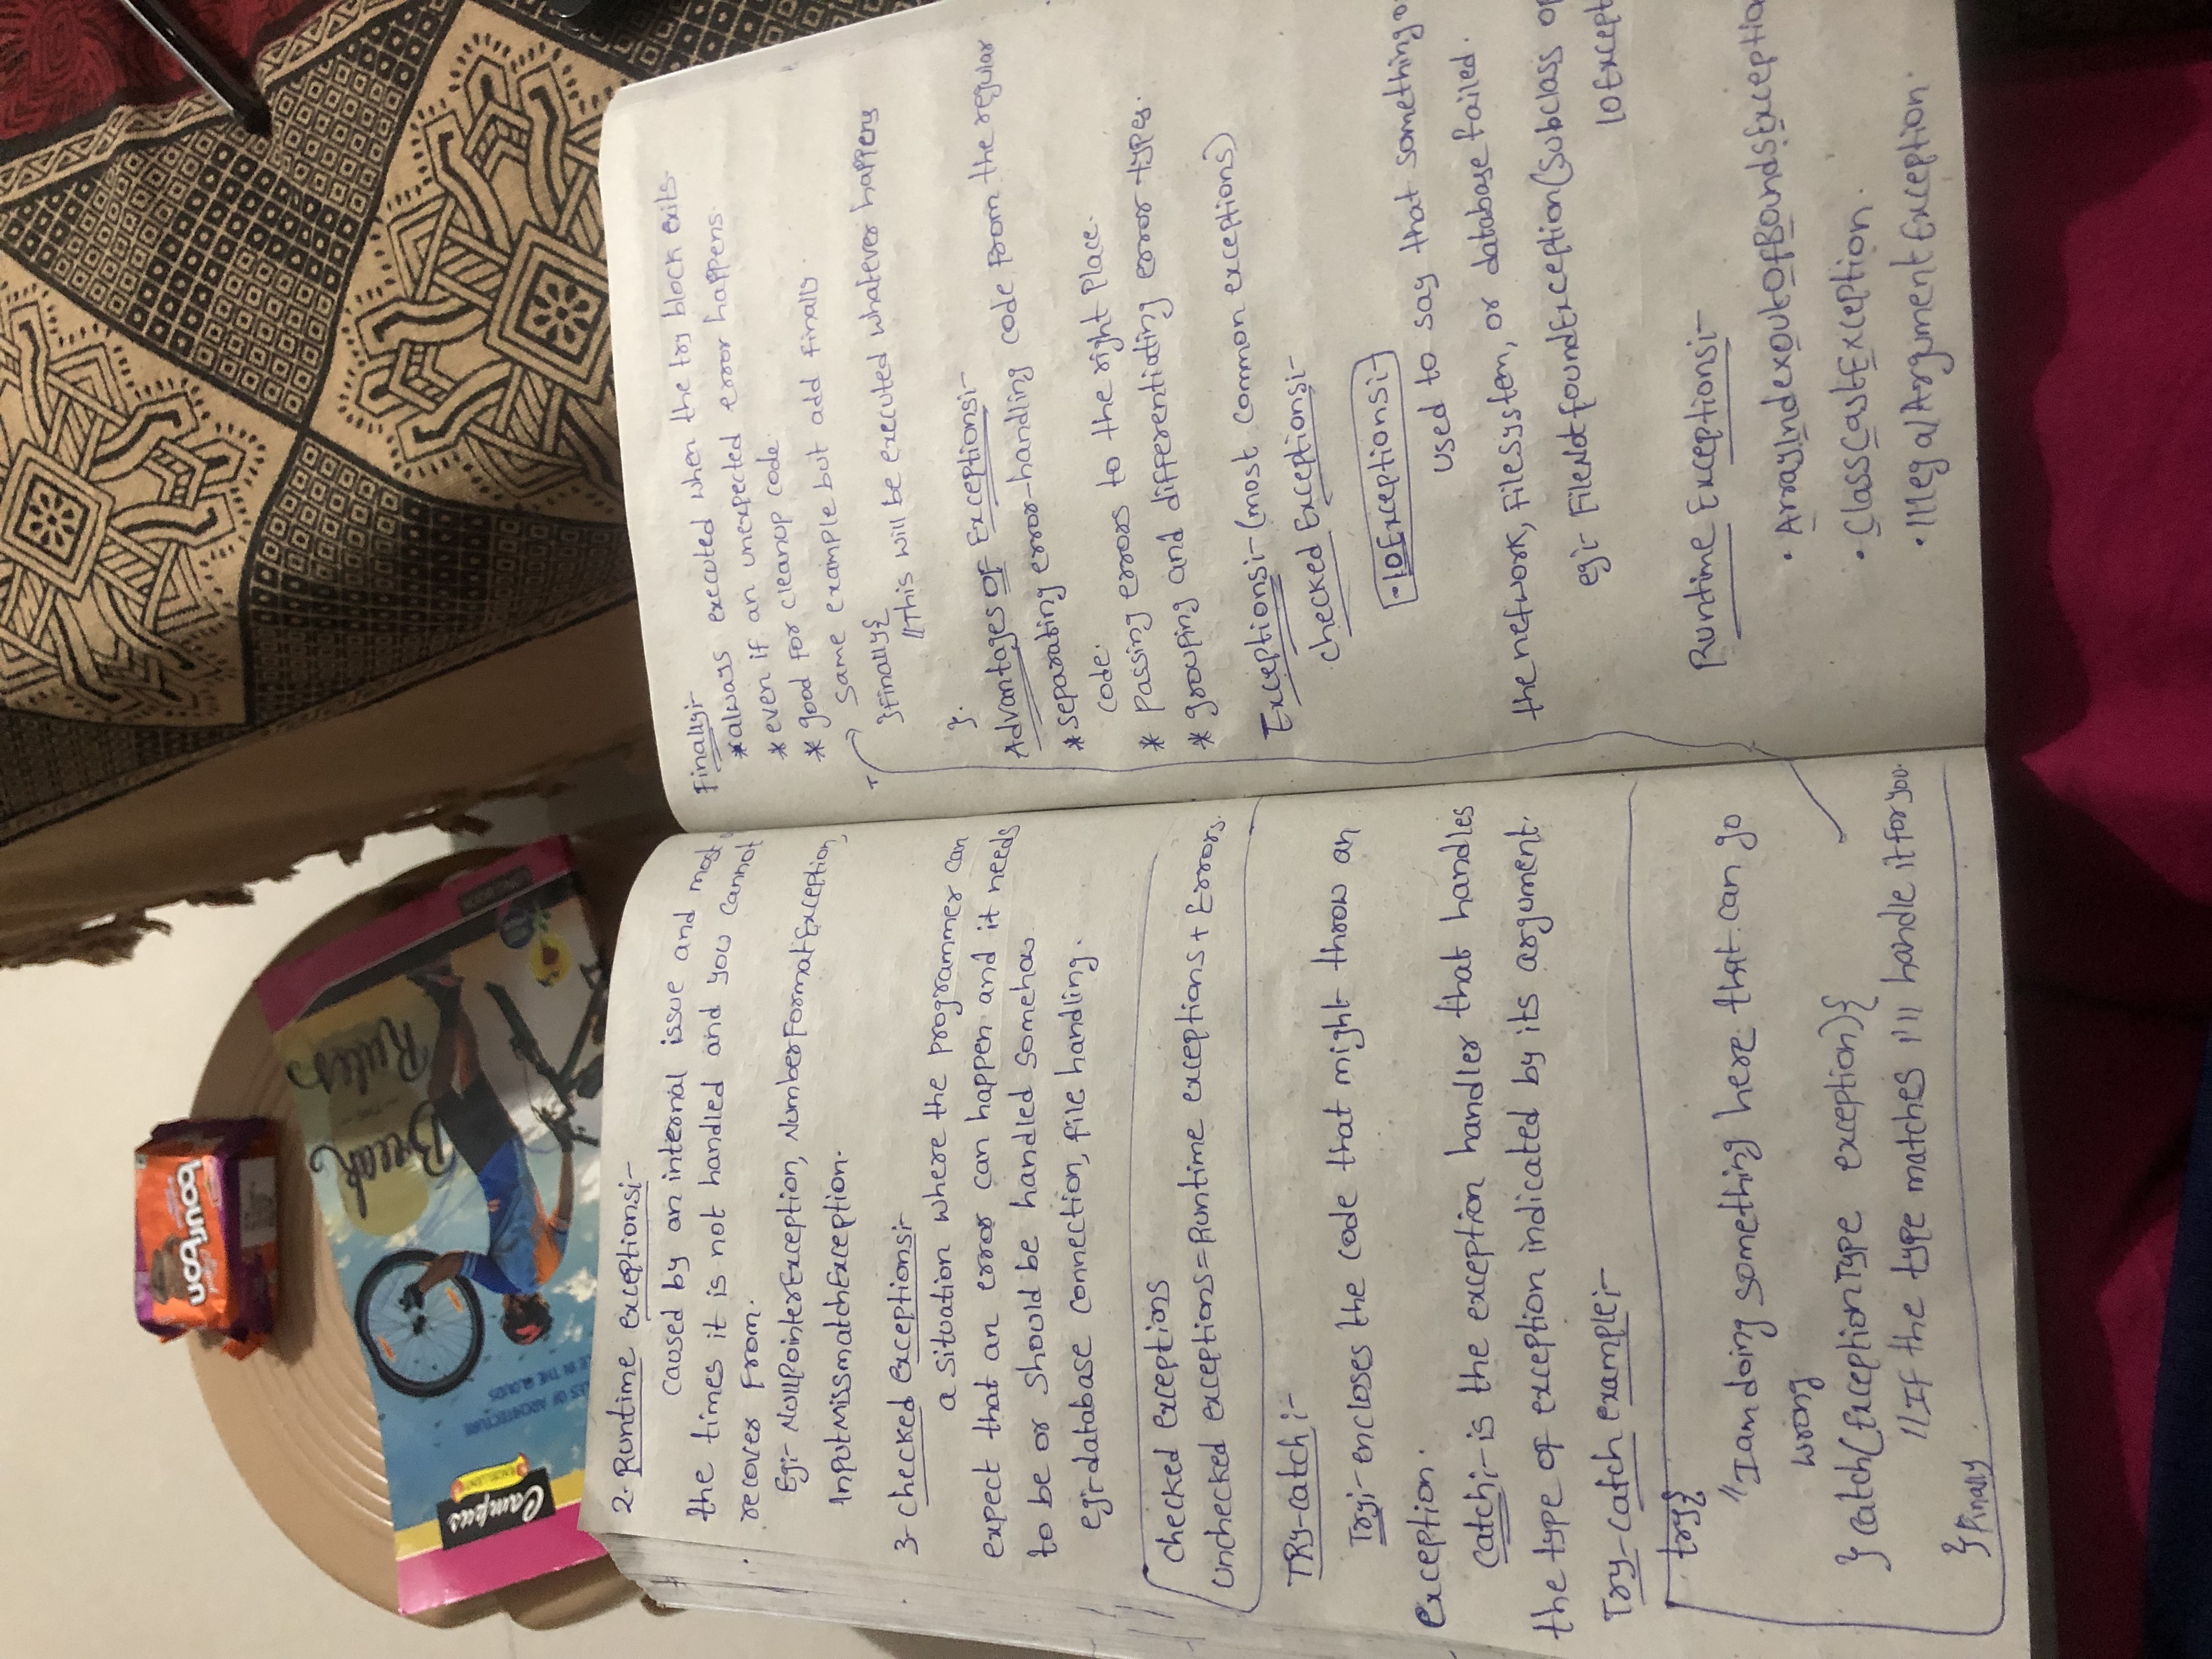 bourbon
Campus
Break
Rules
2. Runtime exceptions:-
caused by an internal issue and most
the times it is not handled and you cannot
recover from.
Eg:- NullPointerException, NumberFormatException,
InputMissmatchException.
3- checked exceptions:-
a situation where the programmer can
expect that an error can happen and it needs
to be or should be handled somehow
eg:- database connection, file handling.
checked exceptions
Unchecked exceptions = Runtime exceptions + Errors.
TRy-catch :-
Try:- encloses the code that might throw an
exception.
catch:- is the exception handler that handles
the type of exception indicated by its argument.
Try-catch example:-
try{
//I am doing something here that can go
wrong
} catch(ExceptionType exception){
//If the type matches I'll handle it for you.
}Finally
Finally:-
*always executed when the try block exits
*even if an unexpected error happens.
* good for cleanup code.
Same example but add finally
}Finally{
//This will be executed whatever happens
}.
Advantages of Exceptions:-
*separating error-handling code from the regular
code.
* passing errors to the right place.
* grouping and differentiating error types.
Exceptions:- (most common exceptions)
checked Exceptions:-
•IOExceptions:-
used to say that something
the network, Filesystem, or database failed.
eg:- FileNotfoundException(subclass of
IOExcept
Runtime Exceptions:-
• ArrayIndexOutOfBoundsExceptio
• ClassCastException.
• IllegalArgumentException.